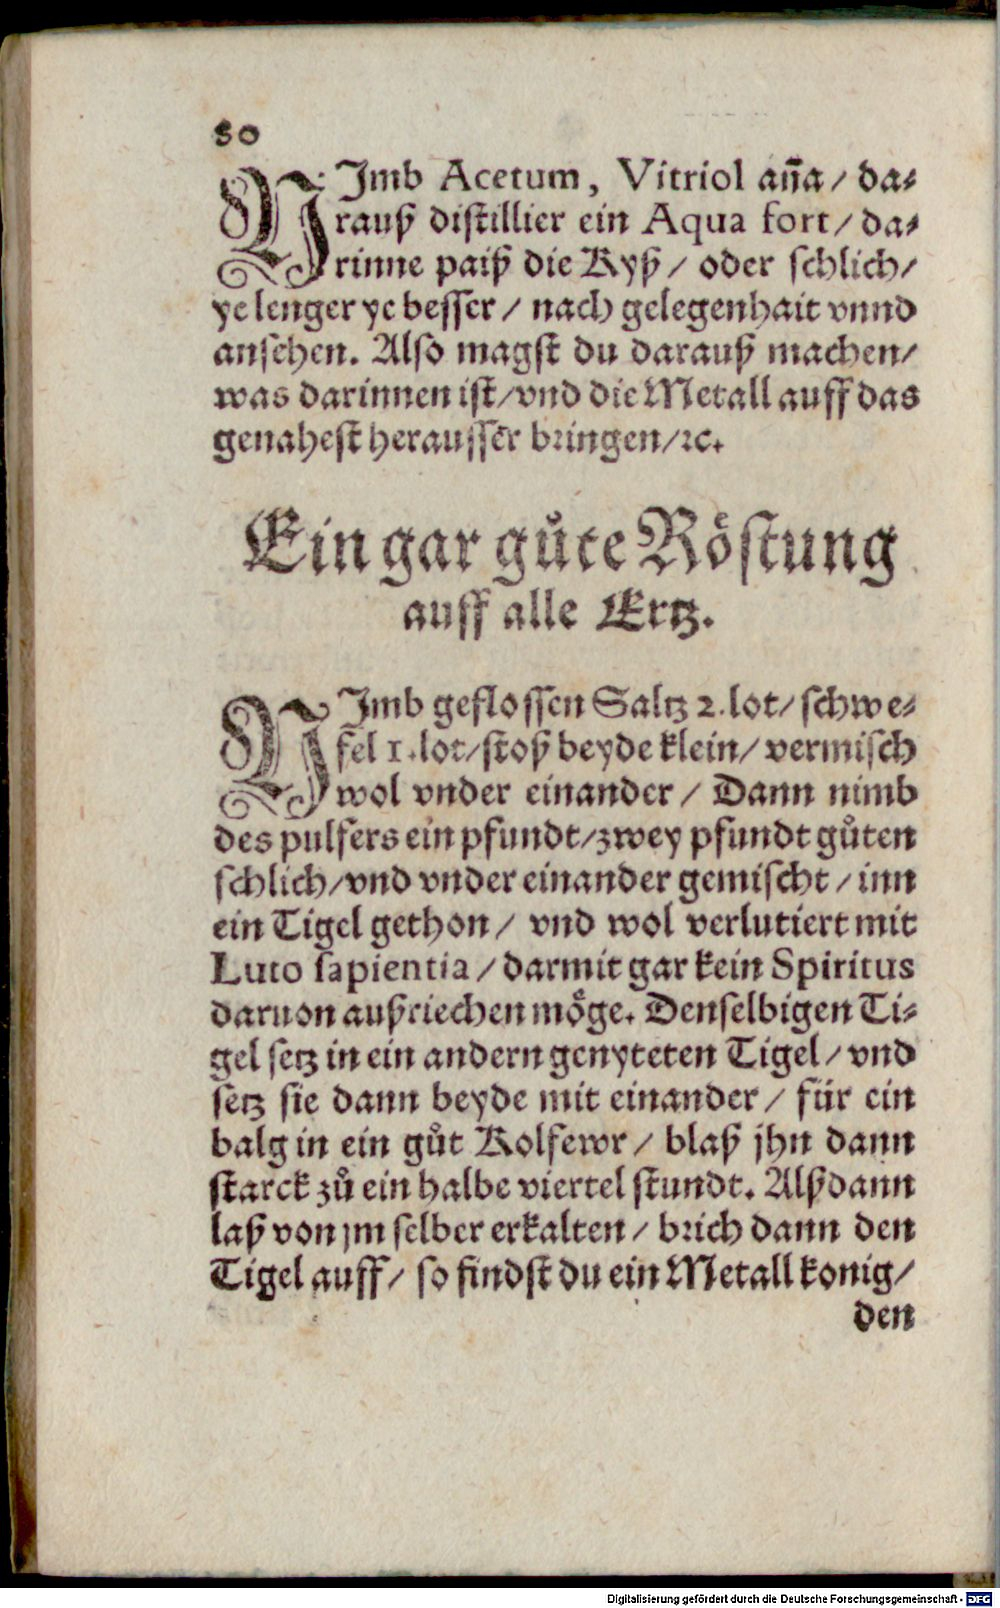 80
NJmb Acetum, Vitriol an̄a / da⸗
rauß distillier ein Aqua fort / da⸗
rinne paiß die Kyß / oder schlich /
ye lenger ye besser / nach gelegenhait vnnd
ansehen. Also magst du darauß machen /
was darinnen ist / vnd die Metall auff das
genahest herausser bringen / ꝛc.
Ein gar gůte Röstung
auff alle Ertz.
NJmb geflossen Saltz 2. lot / schwe⸗
fel 1. lot / stoß beyde klein / vermisch
wol vnder einander / Dann nimb
des pulfers ein pfundt / zwey pfundt gůten
schlich / vnd vnder einander gemischt / inn
ein Tigel gethon / vnd wol verlutiert mit
Luto sapientia / darmit gar kein Spiritus
daruon außriechen möge. Denselbigen Ti⸗
gel setz in ein andern genyteten Tigel / vnd
setz sie dann beyde mit einander / für ein
balg in ein gůt Kolfewr / blaß jhn dann
starck zů ein halbe viertel stundt. Alßdann
laß von jm selber erkalten / brich dann den
Tigel auff / so findst du ein Metall konig /
den
Digitalisierung gefördert durch die Deutsche Forschungsgemeinschaft - DFG